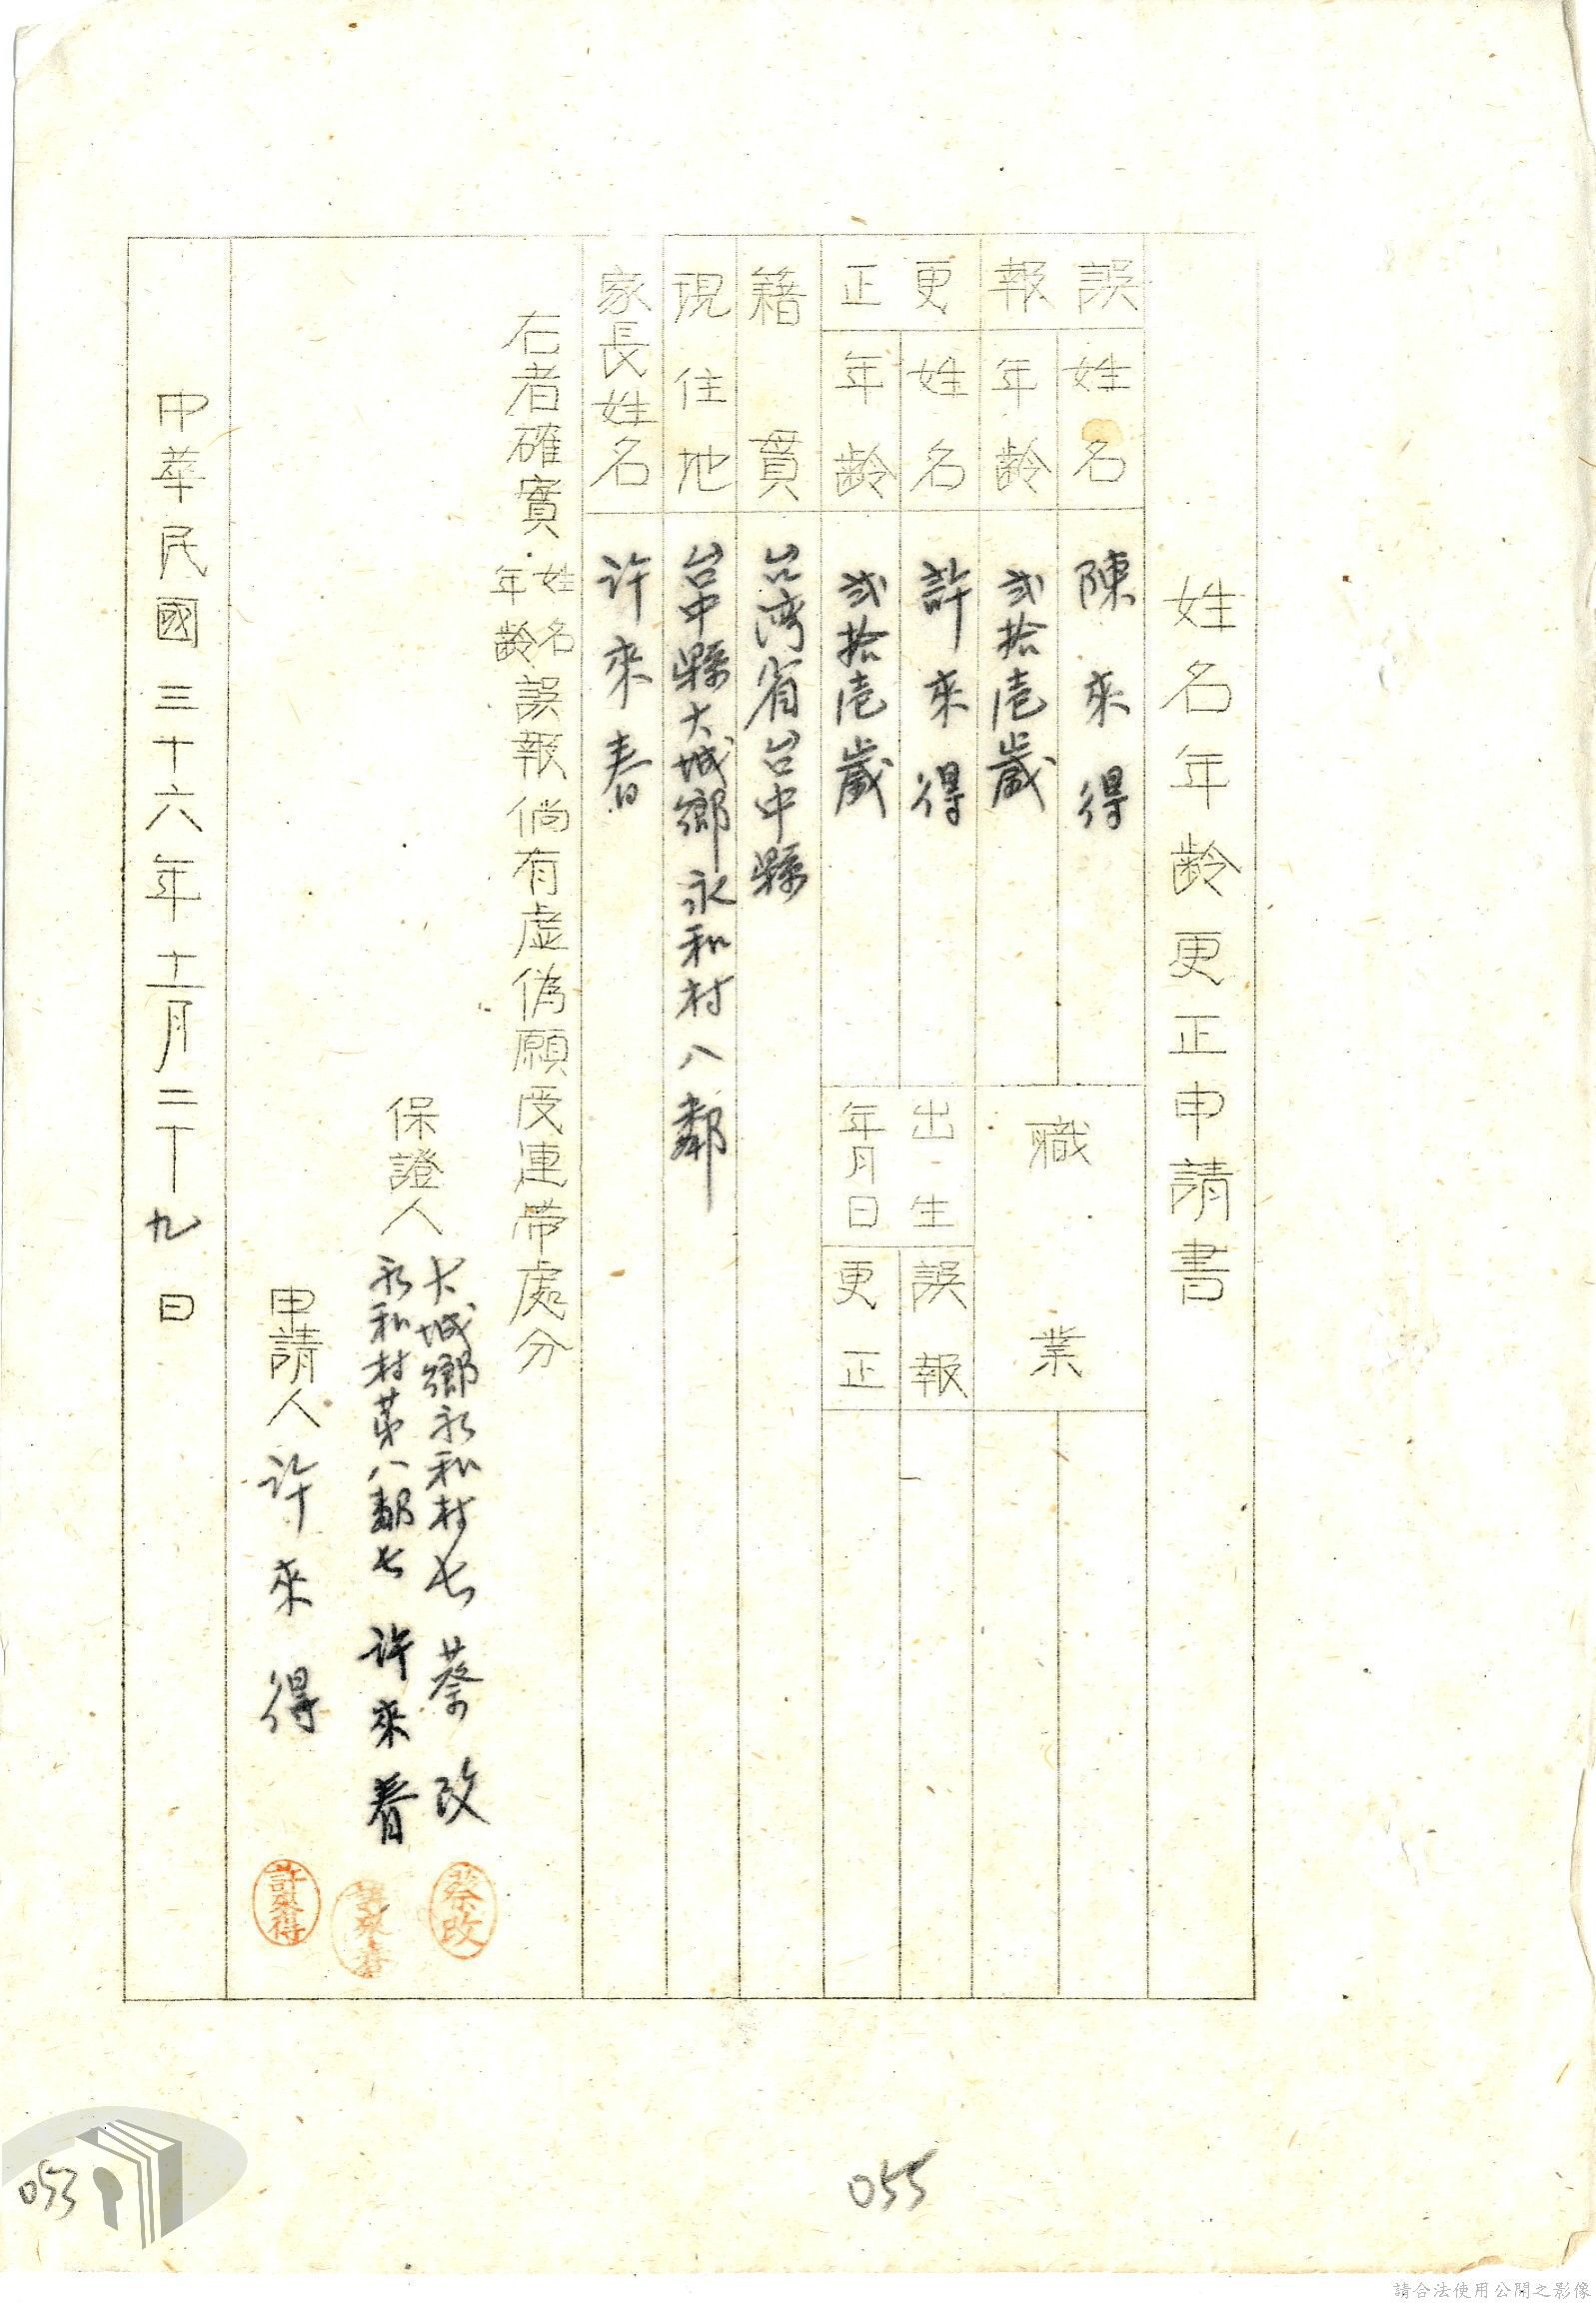 姓名年齡更正申請書
誤報
姓名
陳來得
年齡
弍拾壱歲
職業
更正
姓名
許來得
年齡
弍拾壱歲
出生年月日
誤報
更正
籍貫
台湾省台中縣
現住地
台中縣大城鄉永和村八鄰
家長姓名
许來春
右者確實姓名年齡誤報倘有虛偽願受連帶處分
保證人
大城鄉永和村七 蔡改
永和村第八鄰七 許來春
申請人 许來得
蔡改
許來春
許來得
中華民國三十六年十二月二十九日
053
055
請合法使用公開之影像